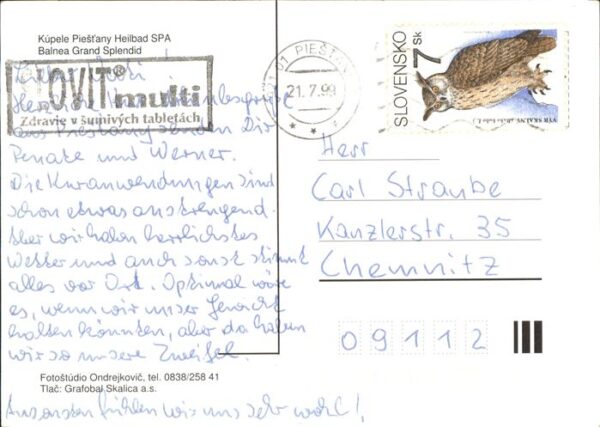 Kúpele Piešťany Heilbad SPA
Balnea Grand Splendid
OVIT® multi
Zdravie v šumivých tabletách
01 PIEŠŤA
21.7.99
SLOVENSKO
7 Sk
VÝR SKALNÝ
Herzliche
aus Piestany senden Dir
Renate und Werner.
Die Kuranwendungen sind
schon etwas anstrengend.
Aber wir haben herrlichstes
Wetter und auch sonst stimmt
alles vor Ort. Optimal wäre
es, wenn wir unser Gewicht
halten könnten, aber da haben
wir so unsere Zweifel.
Ansonsten fühlen wir uns sehr wohl!
Herr
Carl Straube
Kanzlerstr. 35
Chemnitz
09112
Fotoštúdio Ondrejkovič, tel. 0838/258 41
Tlač: Grafobal Skalica a.s.